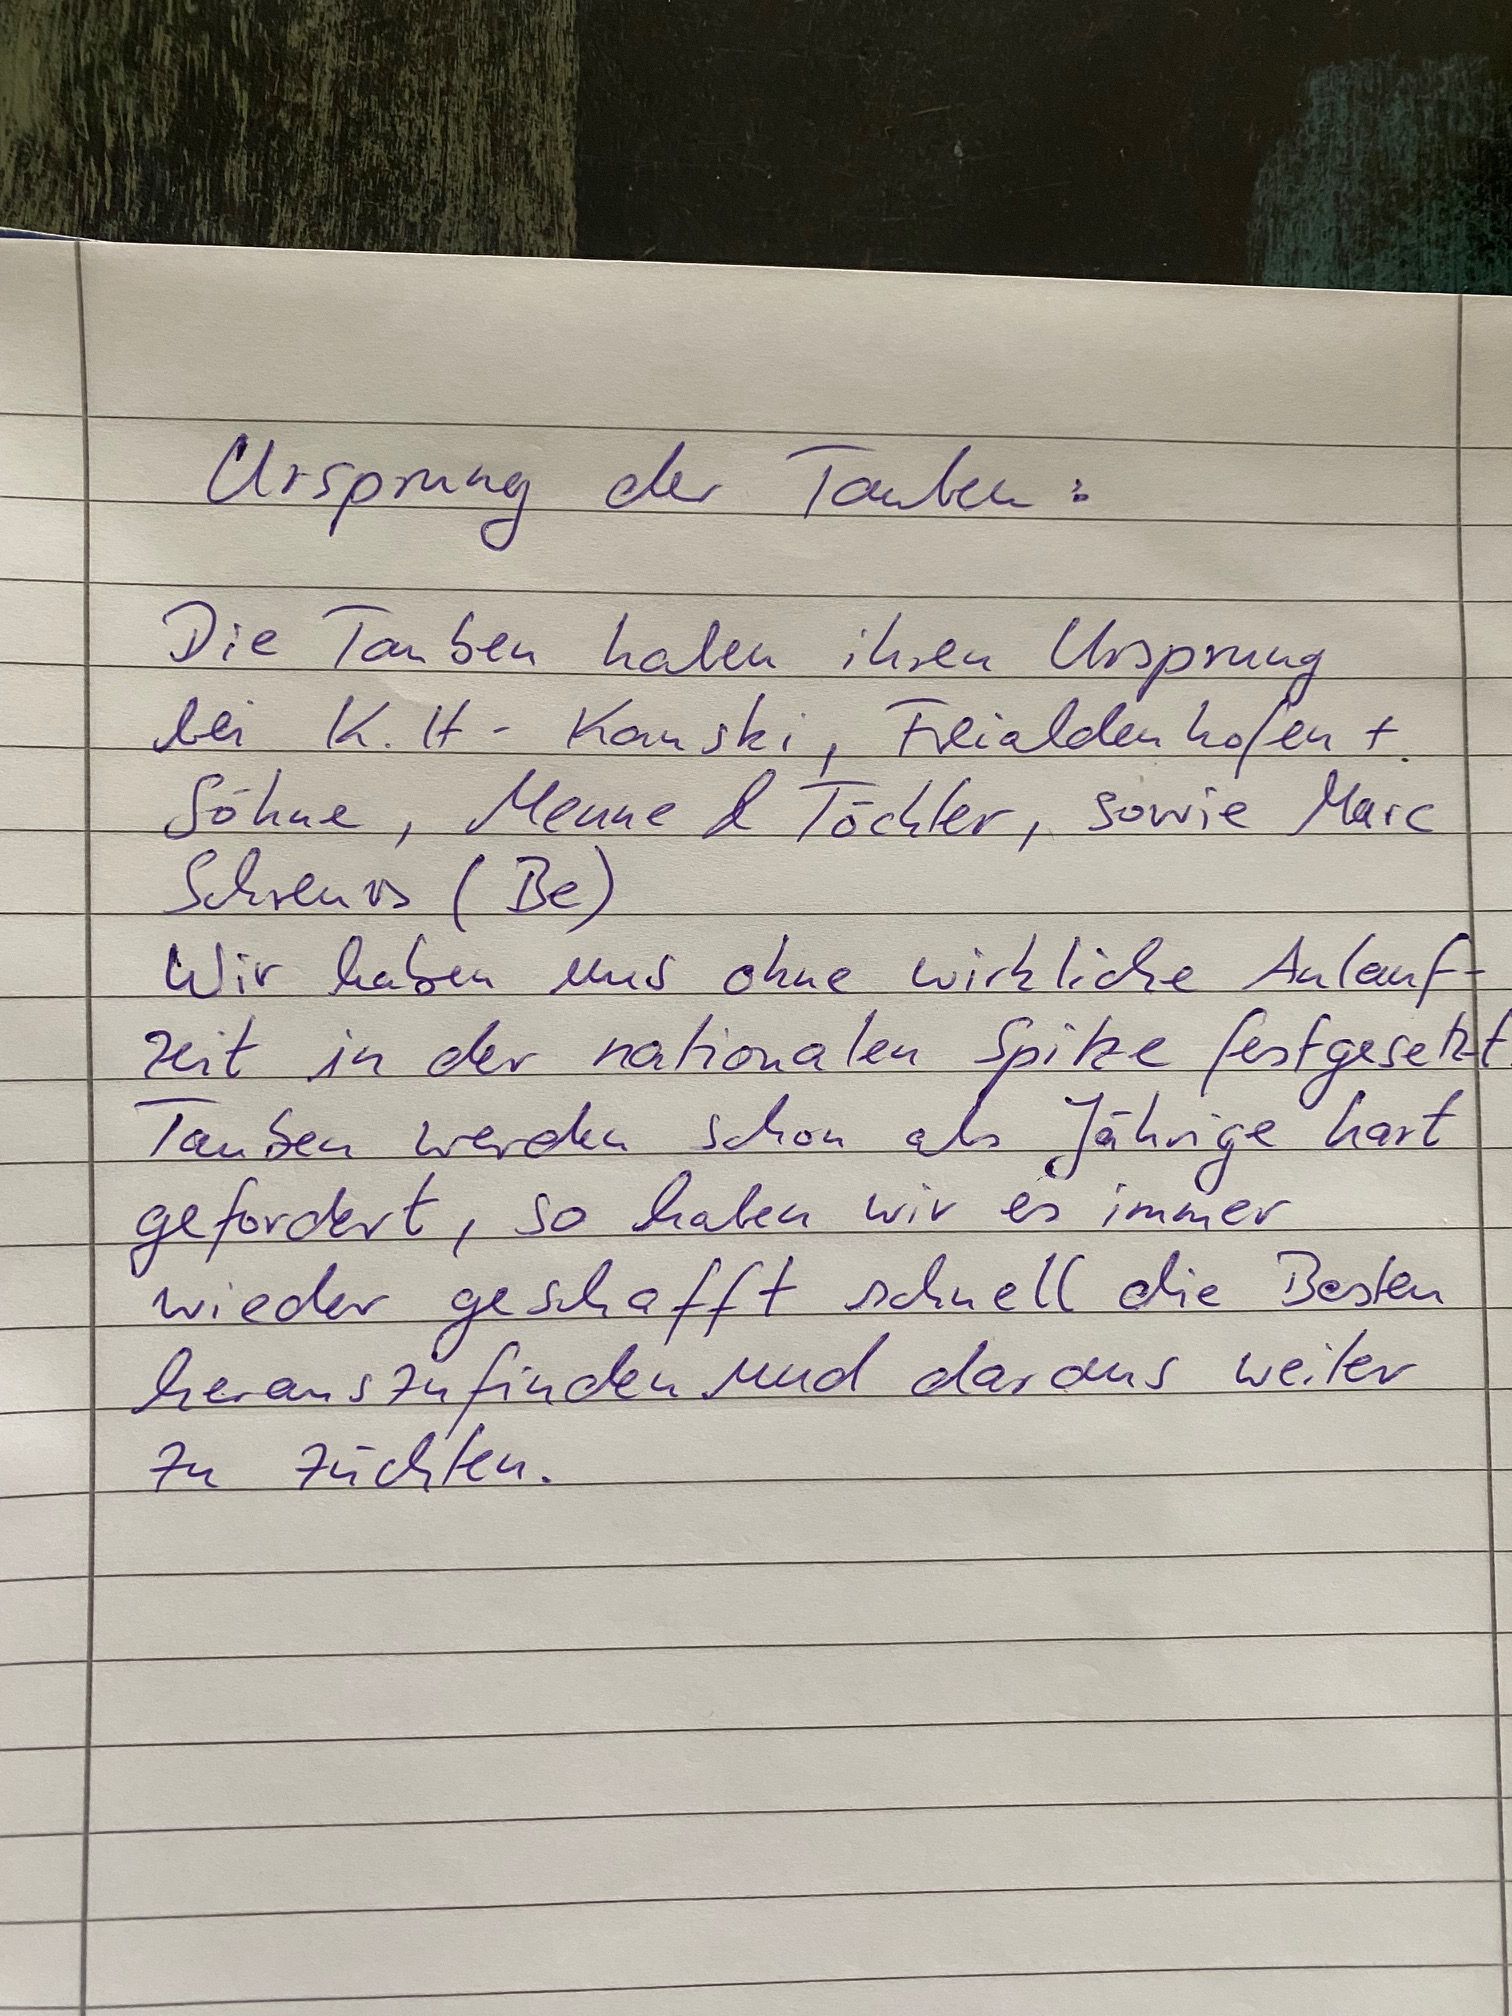 Ursprung der Tauben:
Die Tauben haben ihren Ursprung
bei K.H- Kauski, Freialdenhofen +
Söhne, Menne & Töchter, sowie Marc
Schreurs (Be)
Wir haben uns ohne wirkliche Anlauf-
zeit in der nationalen Spitze festgesetzt.
Tauben werden schon als Jährige hart
gefordert, so haben wir es immer
wieder geschafft schnell die Besten
herauszufinden und daraus weiter
zu züchten.